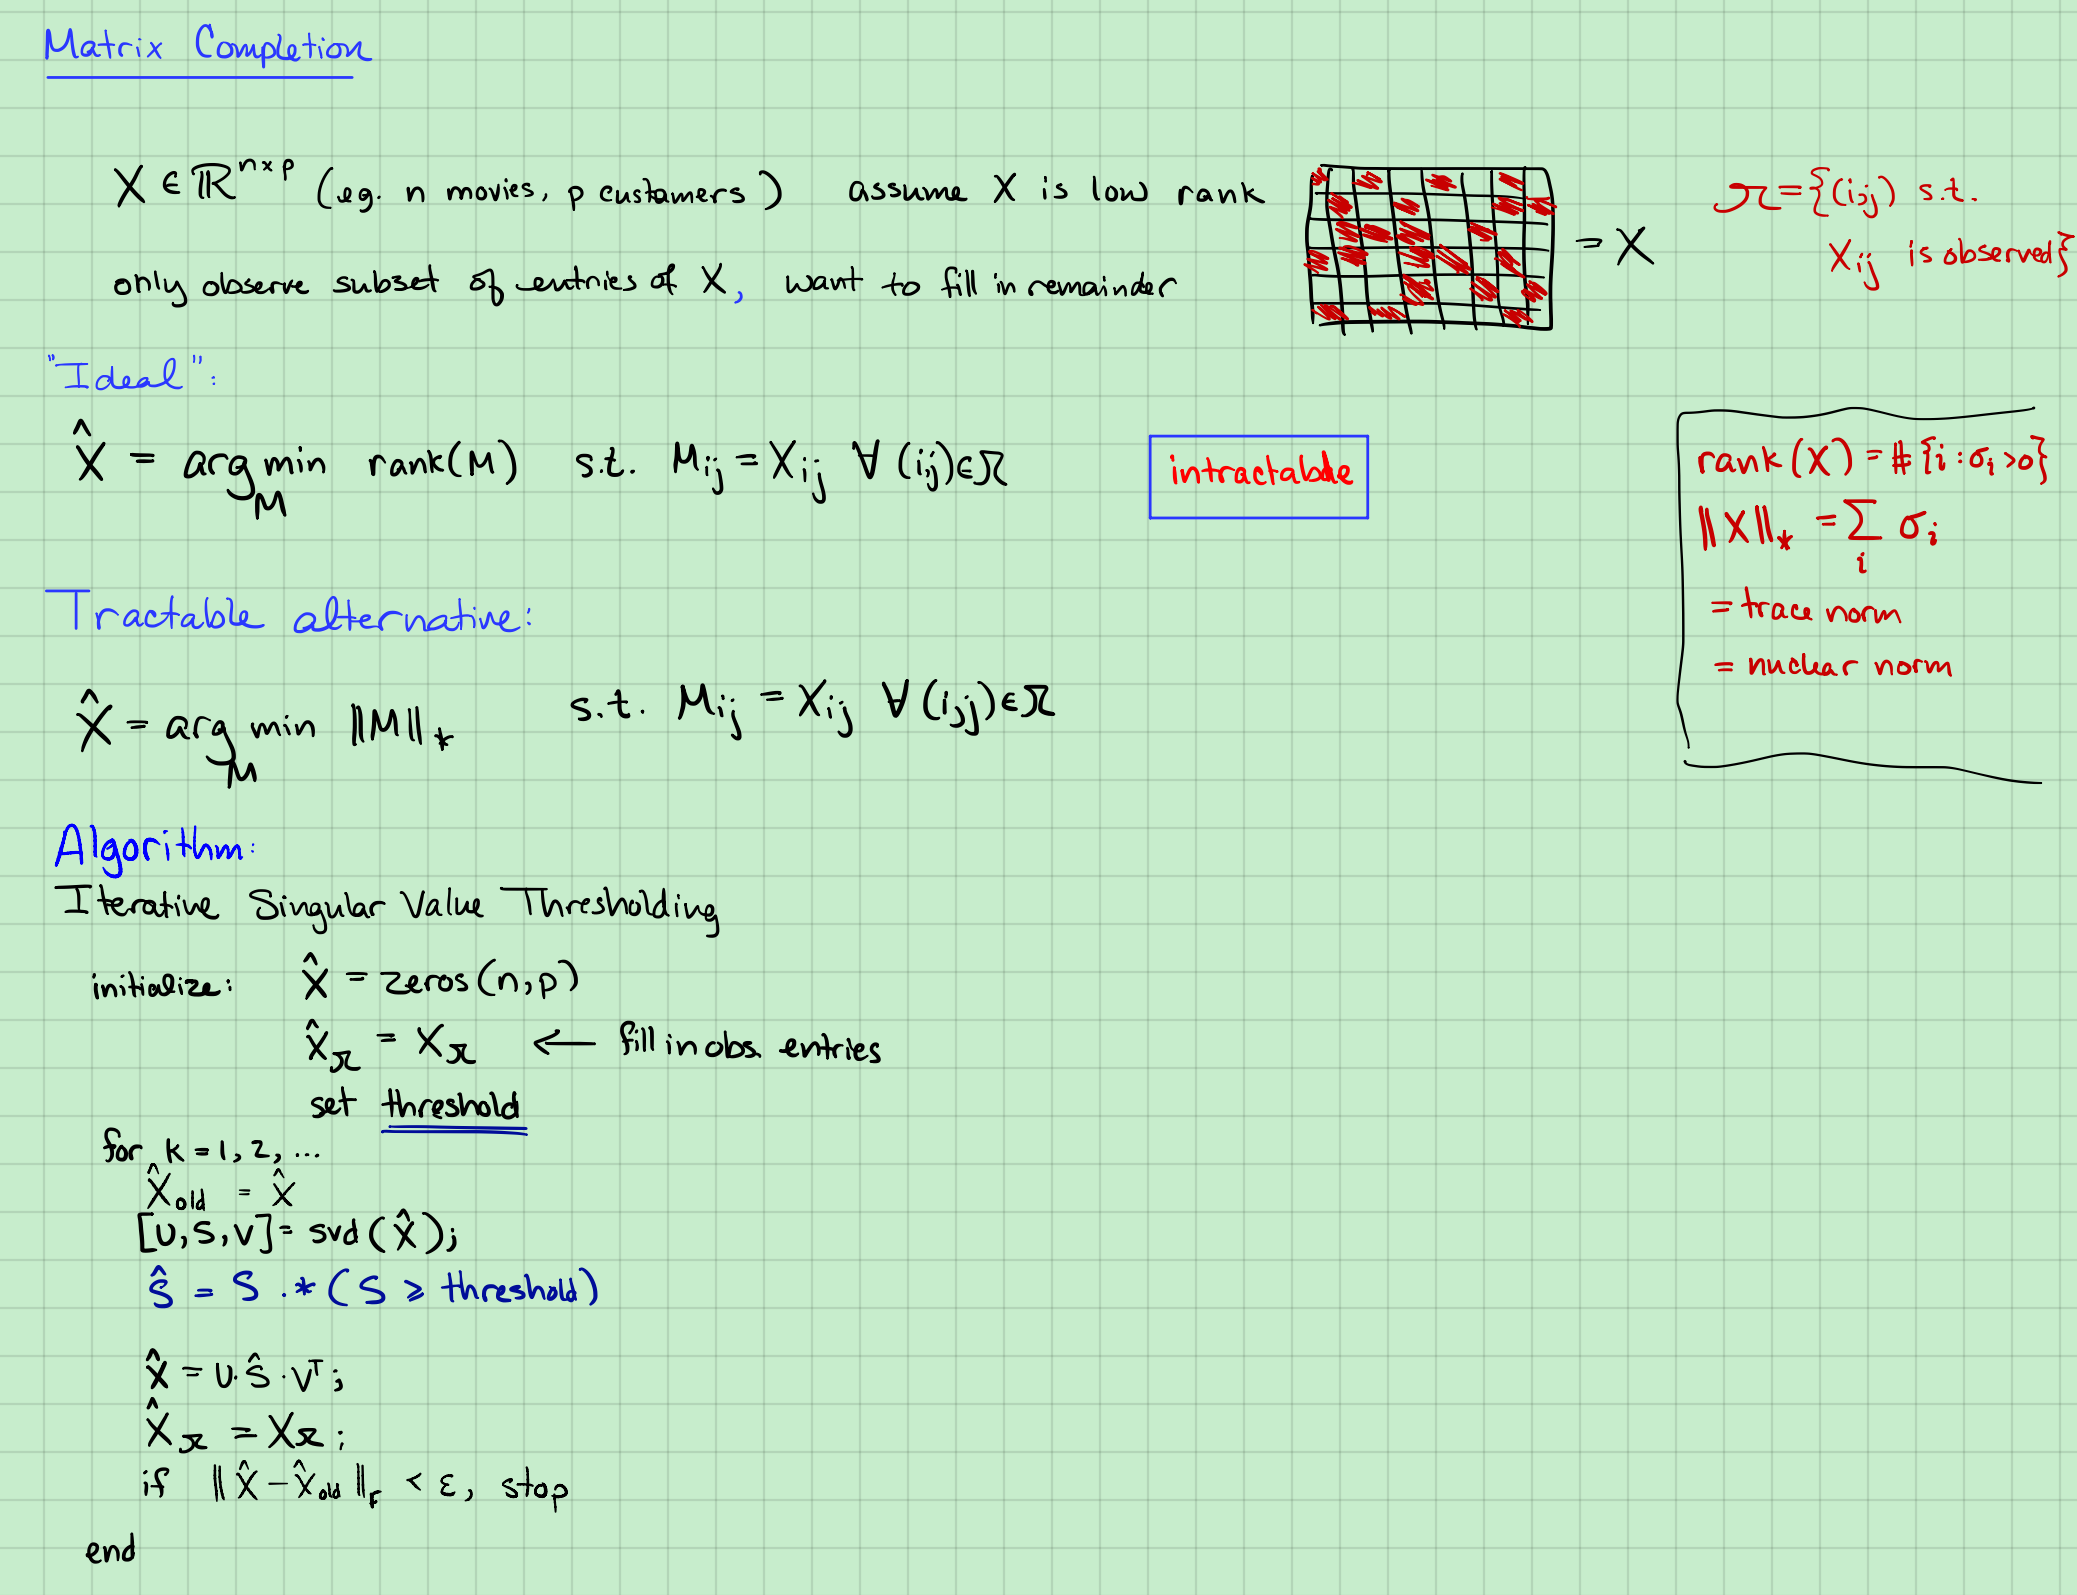 Matrix Completion
X ∈ ℝ^{n×p} (eg. n movies, p customers) assume X is low rank
only observe subset of entries of X, want to fill in remainder
= X
Ω = {(i,j) s.t.
X_{ij} is observed}
"Ideal":
X̂ = arg min_M rank(M) s.t. M_{ij} = X_{ij} ∀ (i,j) ∈ Ω
intractable
rank(X) = #{i : σ_i > 0}
‖X‖_* = Σ_i σ_i
= trace norm
= nuclear norm
Tractable alternative:
X̂ = arg min_M ‖M‖_* s.t. M_{ij} = X_{ij} ∀ (i,j) ∈ Ω
Algorithm:
Iterative Singular Value Thresholding
initialize: X̂ = zeros(n,p)
X̂_Ω = X_Ω ← fill in obs. entries
set threshold
for k = 1, 2, ...
X̂_{old} = X̂
[U, S, V] = svd(X̂);
Ŝ = S .* (S ≥ threshold)
X̂ = U·Ŝ·V^T;
X̂_Ω = X_Ω;
if ‖X̂ - X̂_{old}‖_F < ε, stop
end